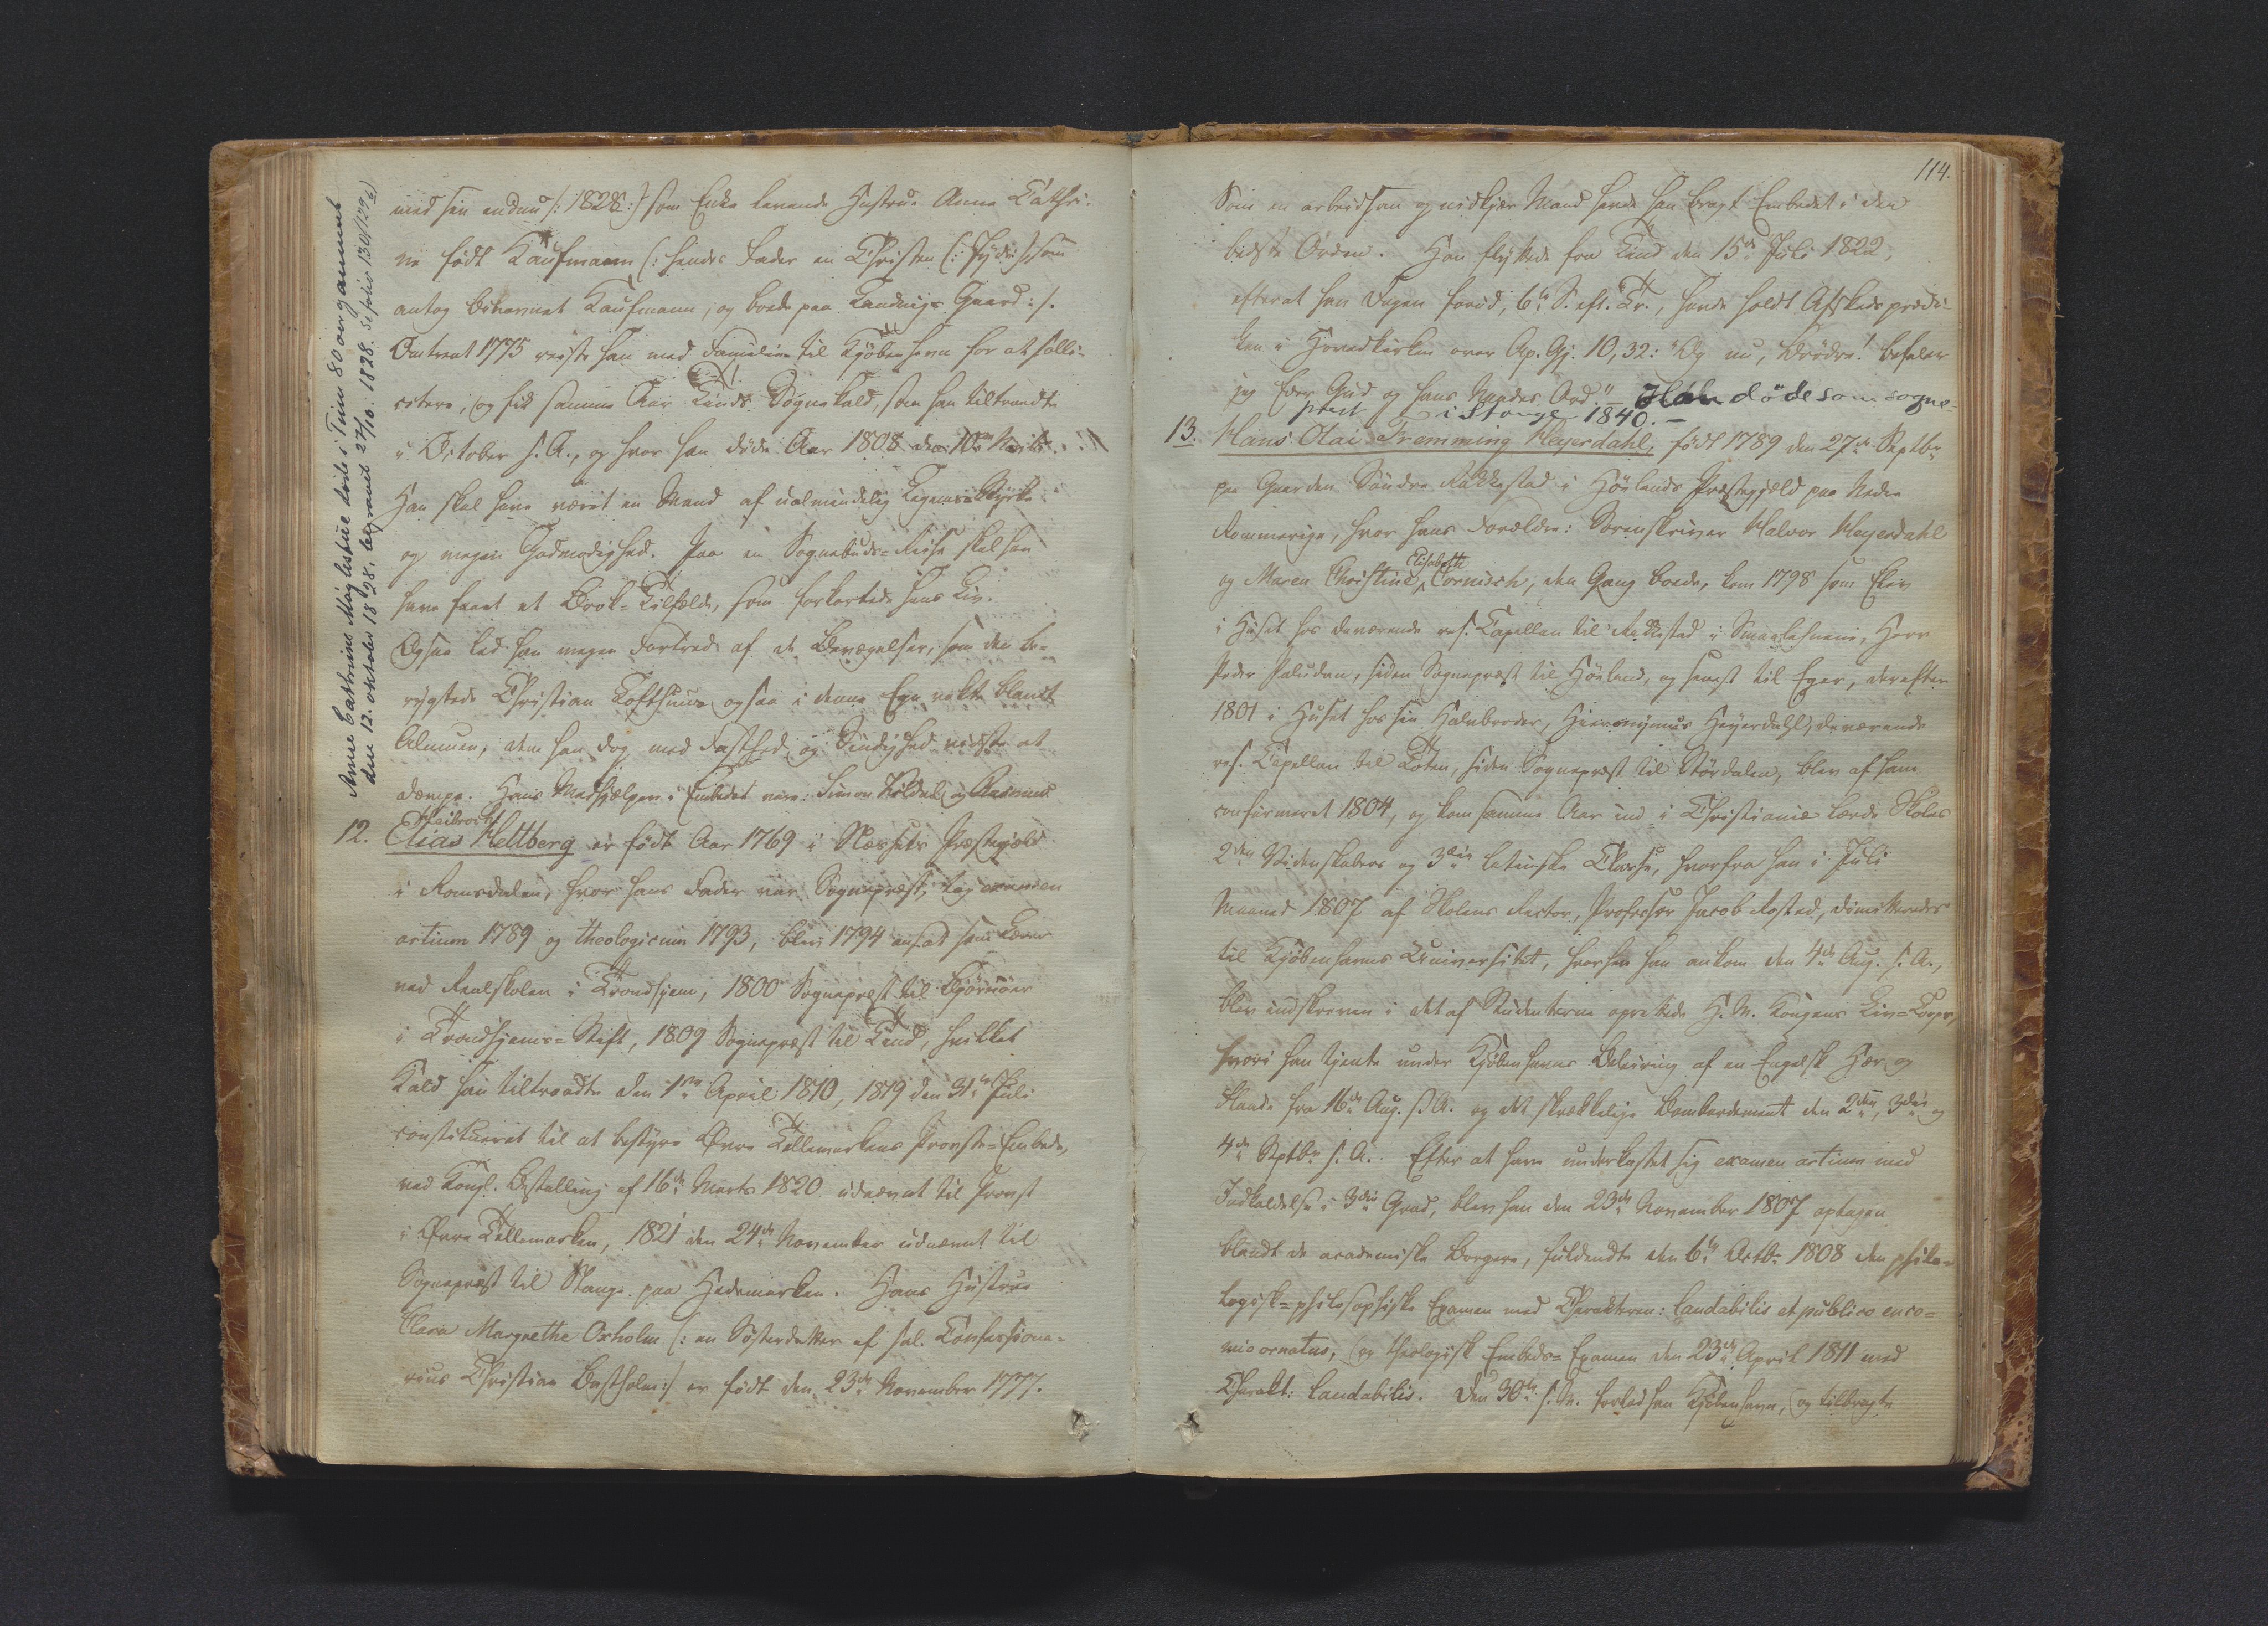 Anne Cathrine Møglestue døde i Tuin 80 aar gammel
den 12. oktober 1828, begravet 27/10. 1828. Se folio 130/129
med sin endnu /: 1828 :/ som Enke levende Hustrue Anne Cathri-
ne født Kaufmann (: hendes Fader en Christen (: Jyde :) som
antog Binavnet Kaufmann, og boede paa Landvigs Gaard :/.
Omtrent 1775 reiste han med Familien til Kjøbenhavn for at solli-
citere, og fik samme Aar Qvinds Sognekald, som han tiltraadte
i October s. A., og hvor han døde Aar 1808 den 10
Han skal have været en Mand af ualmindelig Legems-Styrke
og megen Godmodighed. Paa en Sognebuds-Reise skal han
have faaet et Brok-Tilfælde, som forkortede hans Liv.
Ogsaa led han megen Fortred af de Bevægelser, som den be-
rygtede Christian Lofthuus ogsaa i denne Egn vakte blandt
Almuen, dem han dog med Fasthed og Sindighed vidste at
dæmpe. Hans Medhjælpere i Embedet vare: Simon og Rasmus
12. Elias Heltberg er født Aar 1769 i Næssets Præstegjeld
i Romsdalen, hvor hans Fader var Sognepræst, tog examen
artium 1789 og theologicum 1793, blev 1794 ansat som Lærer
ved Realskolen i Trondhjem, 1800 Sognepræst til Bjørnør
i Trondhjems-Stift, 1809 Sognepræst til Qvind, hvilket
Kald han tiltraadte den 1ste April 1810, 1819 den 31te Juli
constitueret til at bestyre Øvre Tellemarkens Provste-Embede,
ved Kongl. Bestalling af 16de Marts 1820 udnævnt til Provst
i Øvre Tellemarken, 1821 den 24de November udnævnt til
Sognepræst til Stange paa Hedemarken. Hans Hustrue
Clara Margrethe Oxholm (: en Søsterdatter af sal. Confessiona-
rius Christian Bastholm :/ er født den 23de November 1777.
114.
Som en arbeidsom og nidkjær Mand havde han bragt Embedet i den
bedste Orden. Han flyttede fra Qvind den 15de Juli 1822,
efterat han Dagen forud, 6te S. eft. Tr., havde holdt Afskedsprædi-
ken i Hovedkirken over Ap. Gj. 10, 32: "Og nu, Brødre! befaler
jeg Eder Gud og hans Naades Ord." — Han døde som sogne-
prest i Stange 1840. —
13. Hans Olai Fremming Heyerdahl, født 1789 den 27de Septbr
paa Gaarden Søndre Rakkestad i Hølands Præstegjæld paa Nedre
Rommerige, hvor hans Forældre: Sorenskriver Halvor Heyerdahl
og Maren Christine Elisabeth Cornisch, den Gang boede, kom 1798 som Elev
i Huset hos daværende res. Capellan til Rakkestad i Smaalehnene, Herr
Peder Paludan, siden Sognepræst til Høland, og senest til Eger, derefter
1801 i Huset hos sin Halvbroder, Hieronymus Heyerdahl, daværende
res. Capellan til Toten, siden Sognepræst til Størdalen, blev af ham
confirmeret 1804, og kom samme Aar ind i Christiania lærde Skoles
2den Videnskabers og 3die latinske Classe, hvorfra han i Juli
Maaned 1807 af Skolens Rector, Professor Jacob Rosted, dimitteredes
til Kjøbenhavns Universitet, hvorhen han ankom den 4de Aug. s. A.,
blev indskreven i det af Studenterne oprettede H. M. Kongens Liv-Corps,
hvori han tjente under Kjøbenhavns Beleiring af en Engelsk Hær og
Flaade fra 16de Aug. s. A. og det skrækkelige Bombardement den 2den, 3die og
4de Septbr s. A. Efter at have underkastet sig examen artium med
Indkaldelse i 3die Grad, blev han den 23de November 1807 optagen
blandt de academiske Borgere, fuldendte den 6te Octbr 1808 den philo-
logisk-philosophiske Examen med Charakteren: laudabilis et publico enco-
mio ornatus, og theologisk Embeds-Examen den 23de April 1811 med
Charakt: laudabilis. Den 30te s. M. forlod han Kjøbenhavn, og tilbragte